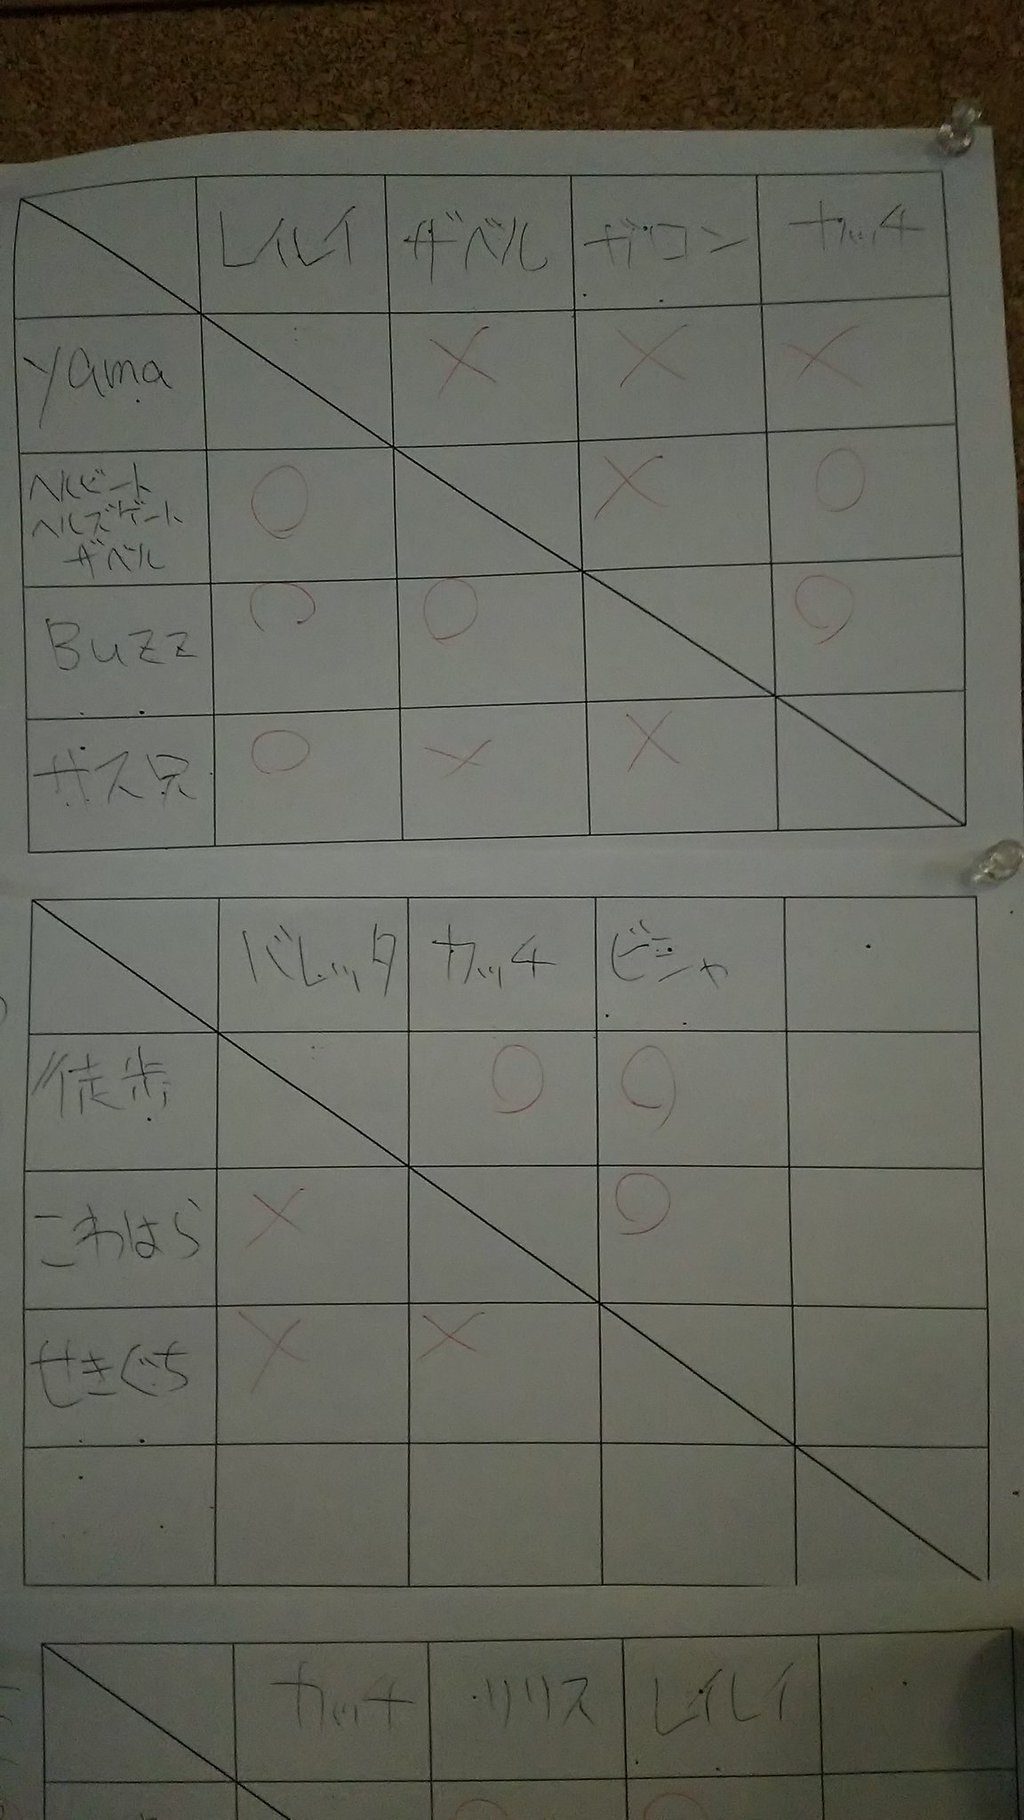 レイレイ ザベル ガロン カッチ
yama × × ×
ヘルビート
ヘルズゲート
ザベル
○ × ○
Buzz ○ ○ ○
ザス兄 ○ × ×
バレッタ カッチ ビシャ
徒歩 ○ ○
こわはら × ○
せきぐち × ×
カッチ リリス レイレイ